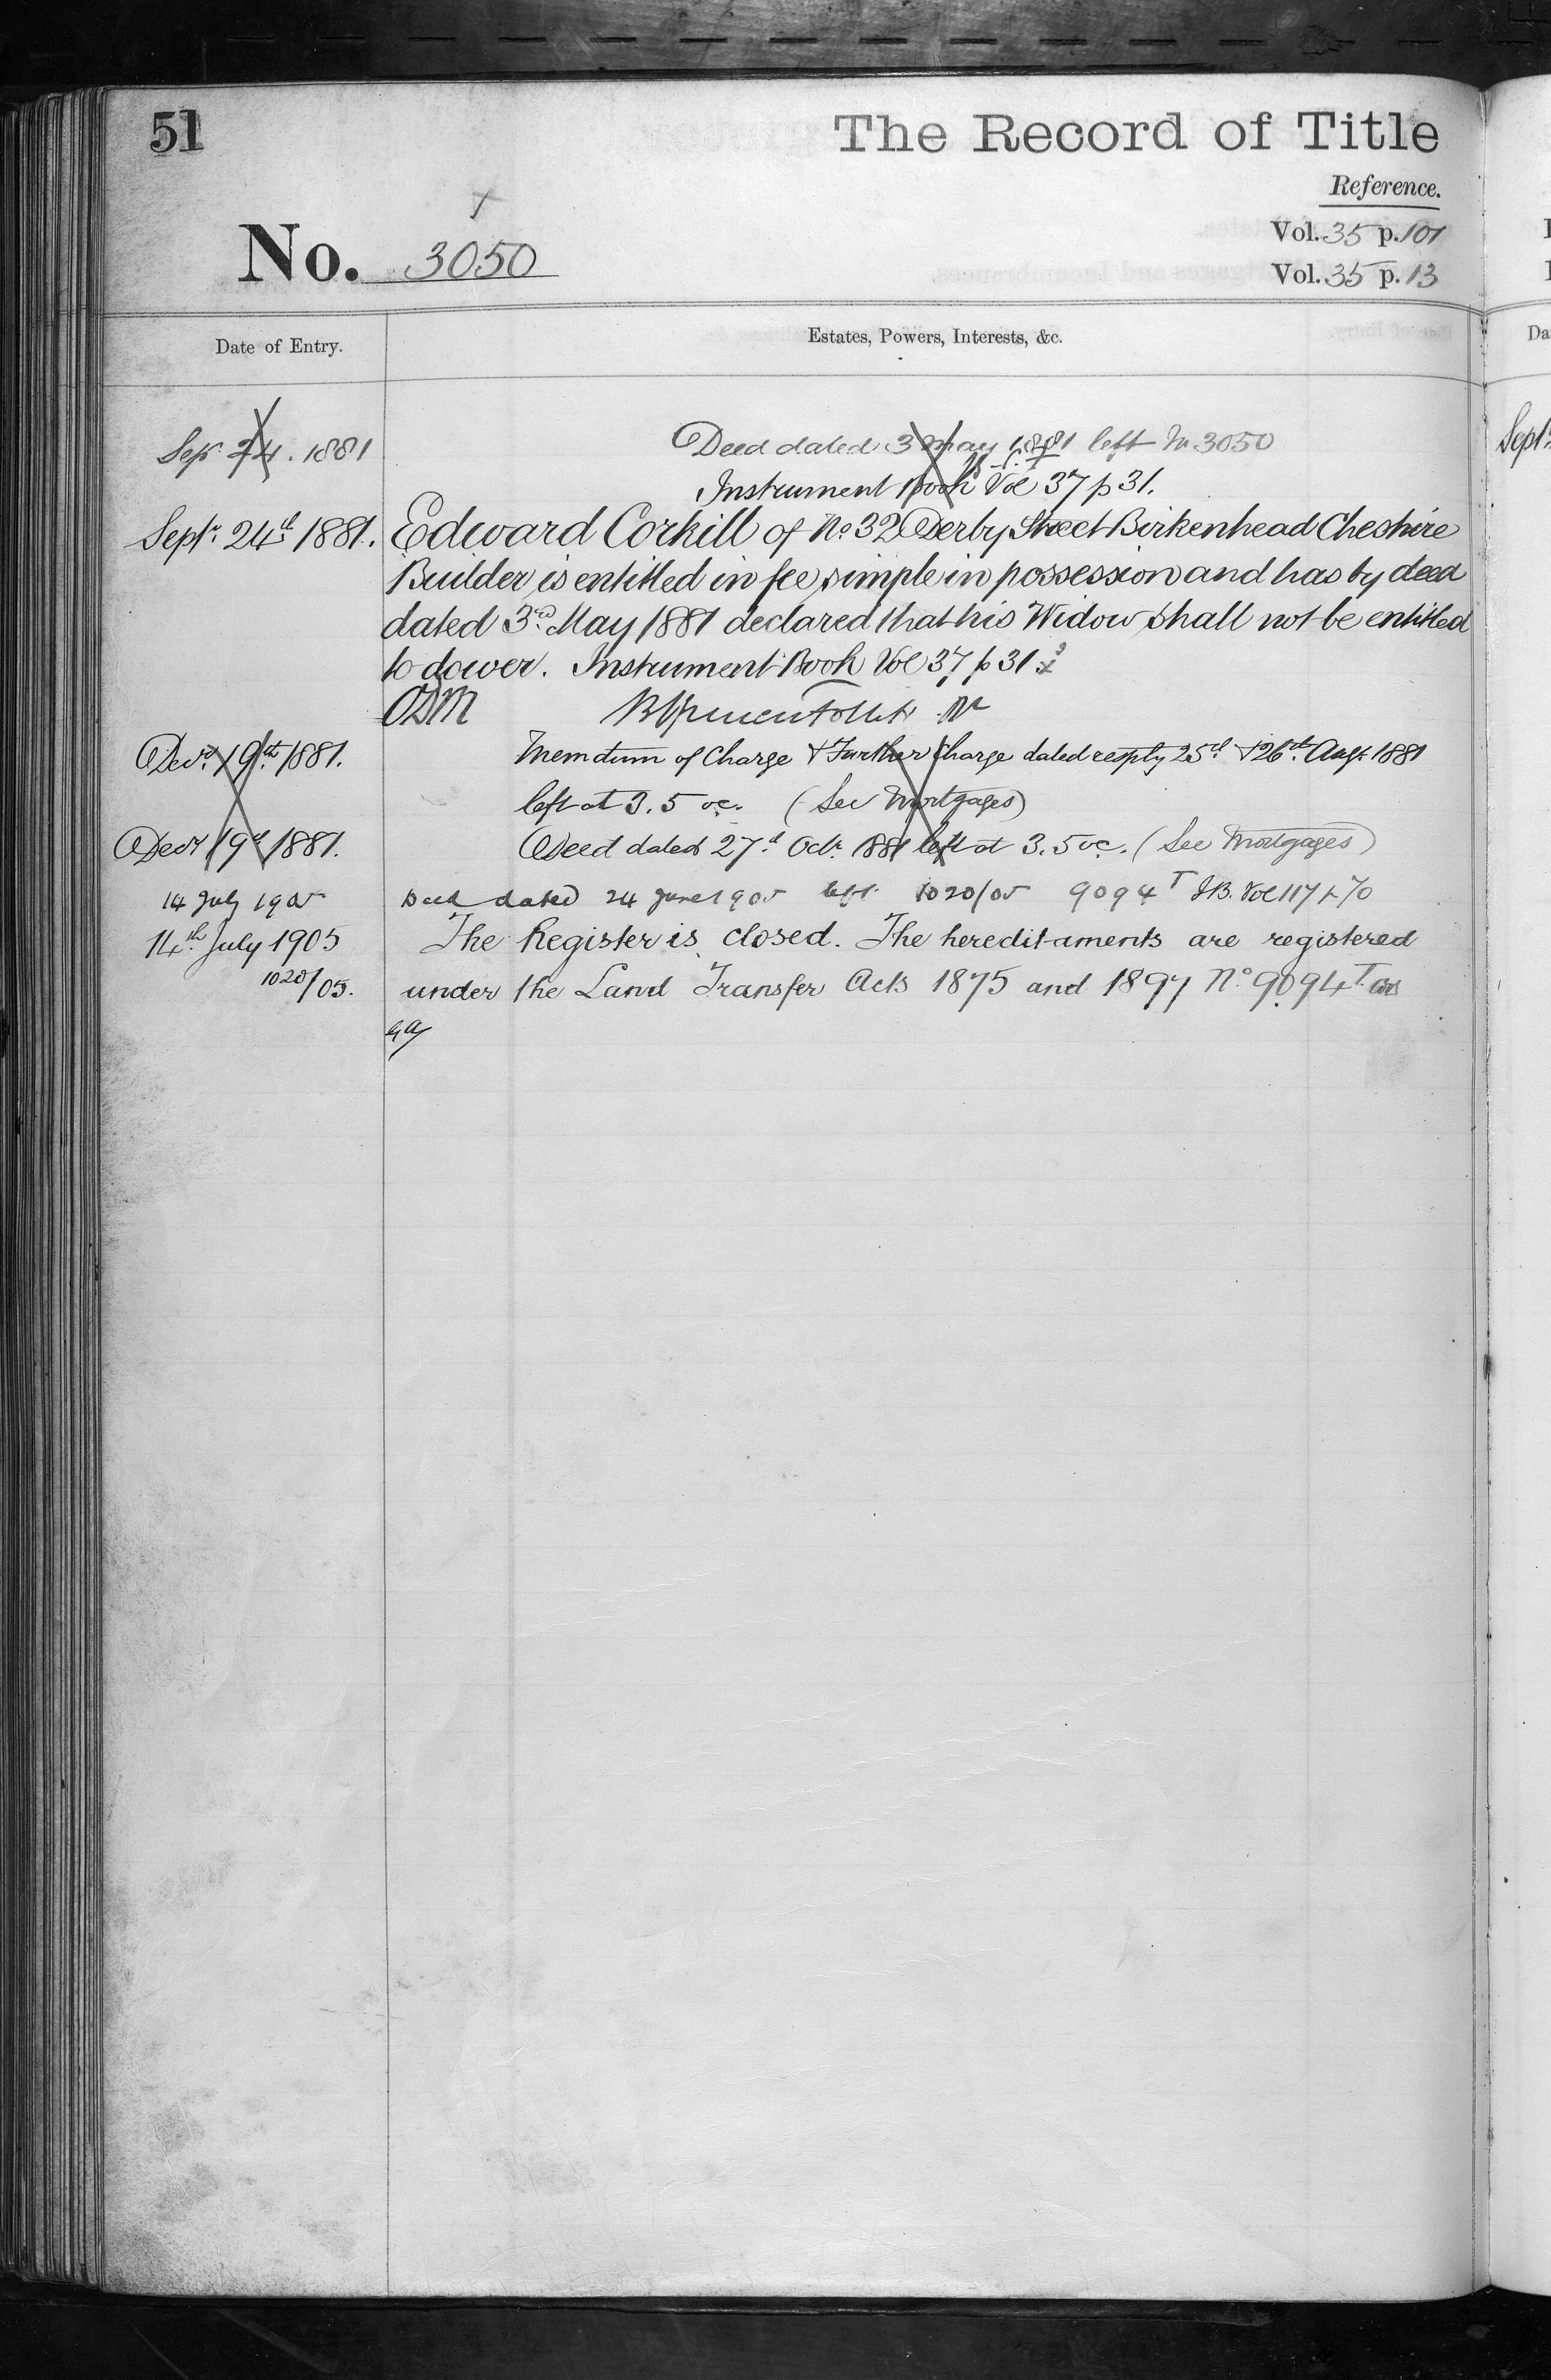 51
The Record of Title
Reference.
No. 3050
Vol. 35 p. 101
Vol. 35 p. 13
Date of Entry.
Estates, Powers, Interests, &c.
Sepr 24. 1881
Deed dated 3 May 1881 left in 3050
Instrument Book Vol 37 p 31.
Septr. 24th 1881. Edward Corkill of No. 32 Derby Street Birkenhead Cheshire
Builder is entitled in fee simple in possession and has by deed
dated 3rd May 1881 declared that his Widow shall not be entitled
to dower. Instrument Book Vol 37 p 31.
Decr. 19th 1881. Memdum of Charge & Further Charge dated resply 25th & 26th Augt 1881
left at 3.5 oc. (See Mortgages)
Decr 19th 1881. Deed dated 27th Octr. 1881 left at 3.5 oc. (See Mortgages)
14 July 1905 Deed dated 24 June 1905 left 1020/05 9094T I.B. Vol 117 p 70
14th July 1905 The Register is closed. The hereditaments are registered
1020/05. under the Land Transfer Acts 1875 and 1897 No. 9094T
Sept
Da